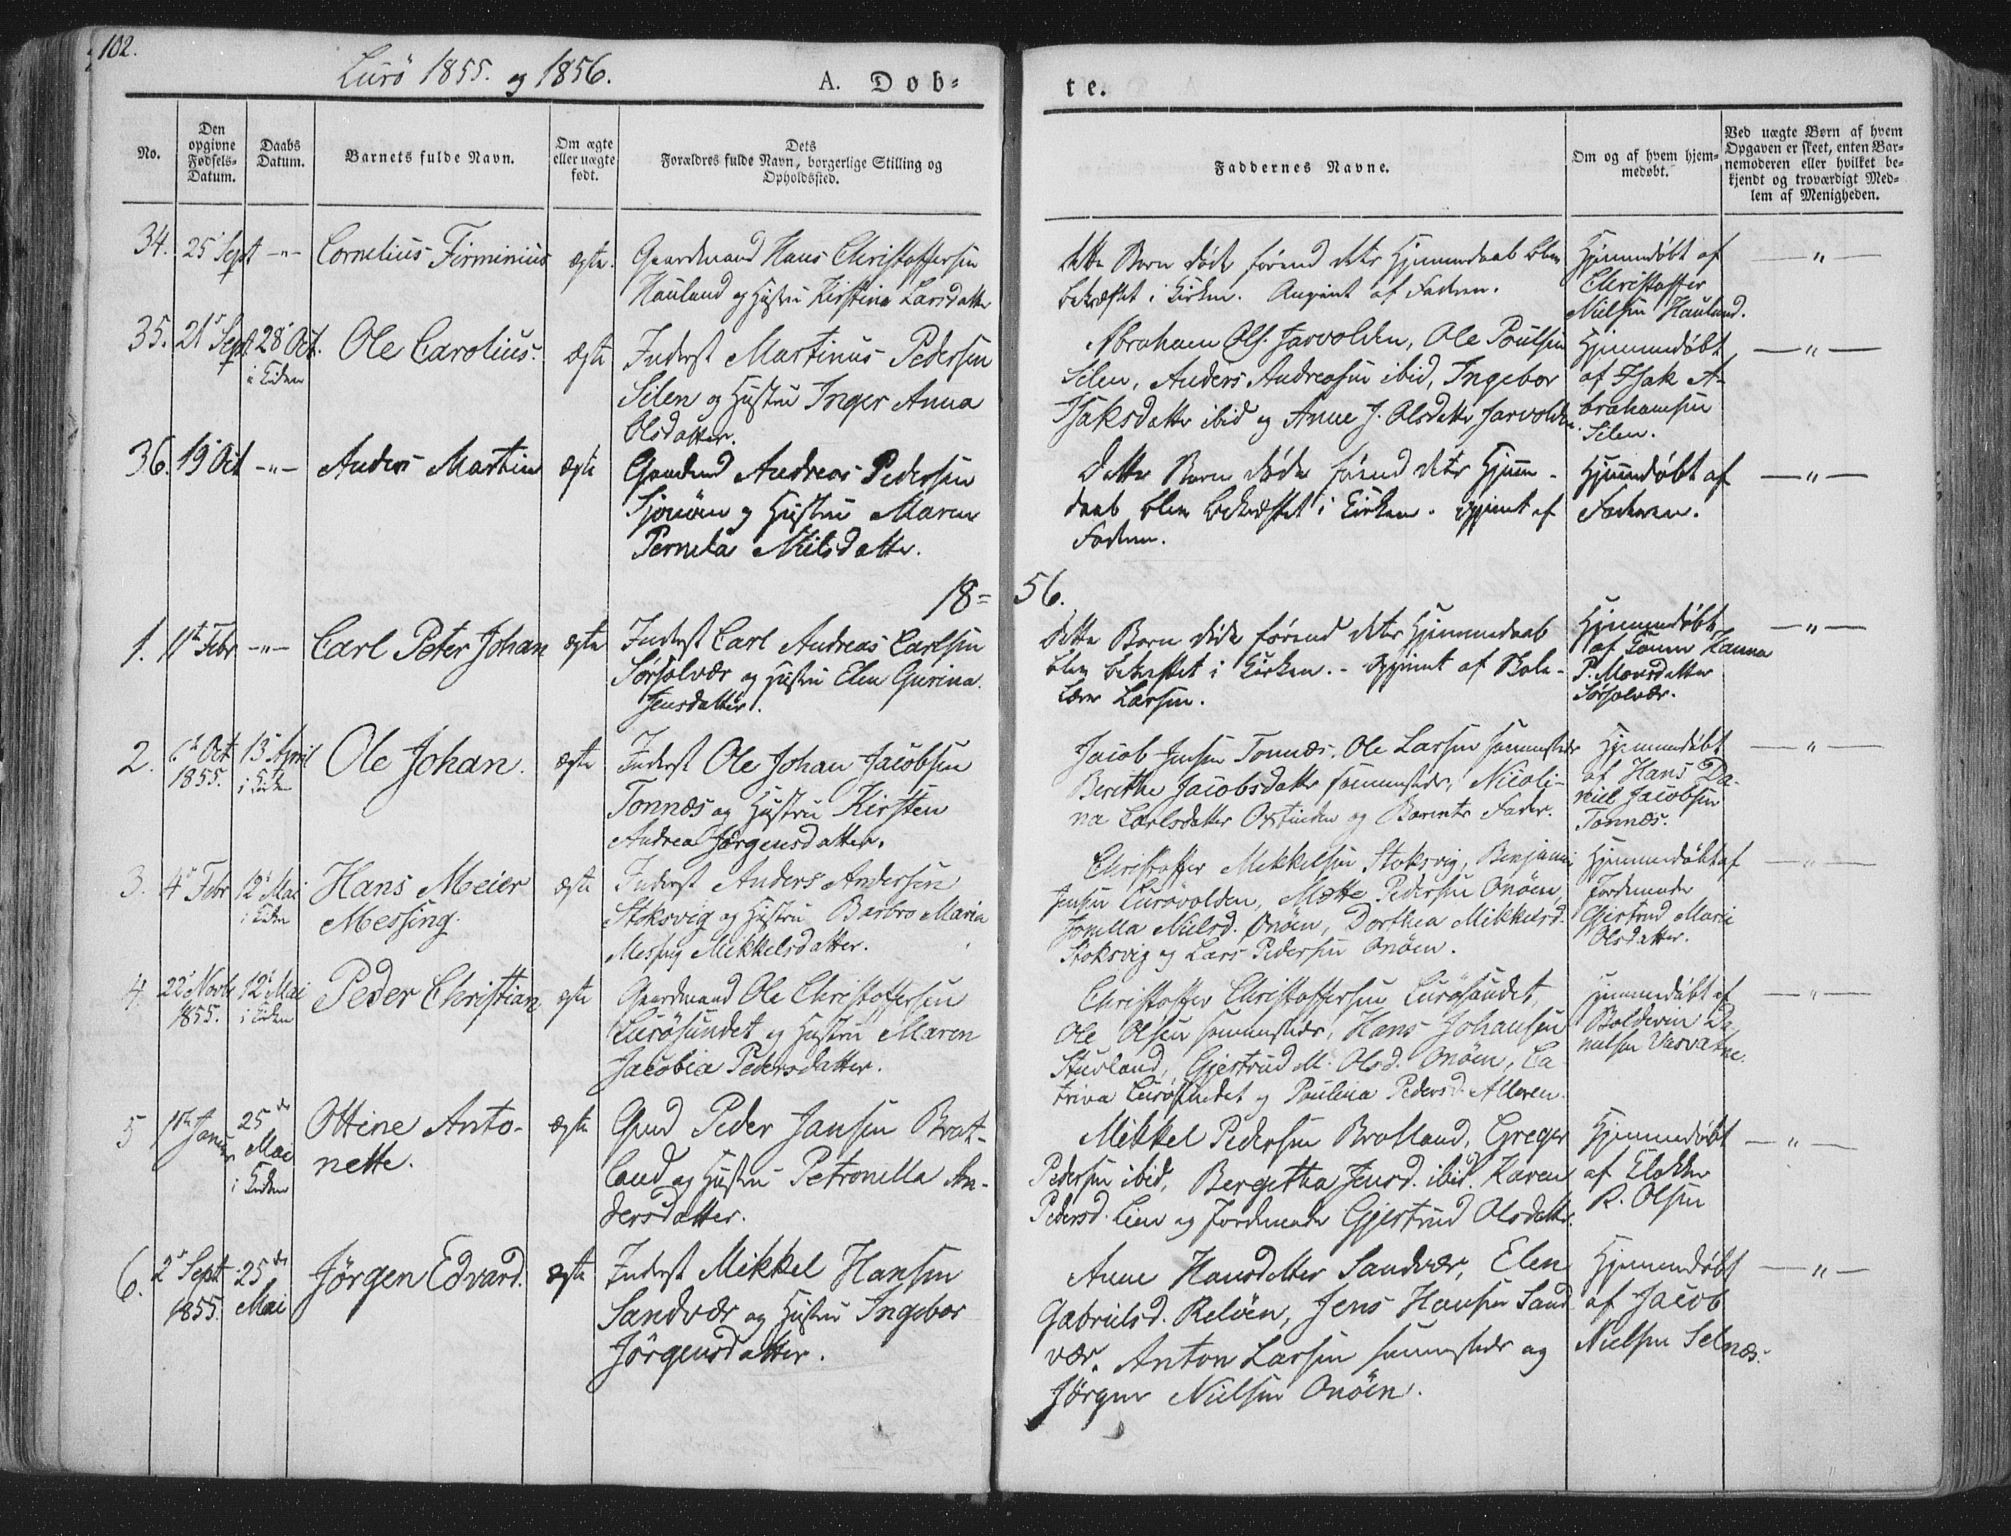 102.
Lurö 1855. og 1856.
A. Døb=
te.
No.
Den opgivne Fødsels-Datum.
Daabs Datum.
Barnets fulde Navn.
Om ægte eller uægte født.
Dets Forældres fulde Navn, borgerlige Stilling og Opholdssted.
Faddernes Navne.
Om og af hvem hjemmedøbt.
Ved uægte Børn af hvem
Opgaven er skeet, enten Bar-
nemoderen eller hvilket be-
kjendt og troværdigt Med-
lem af Menigheden.
34. 25 Sept -"- Cornelius Firminius ægte. Gaardmand Hans Christoffersen
Hauland og Hustru Kirstina Larsdatter
dette Barn döde förend dets Hjemmedaab blev
bekræftet i Kirken. Angivet af Faderen.
Hjemmedøbt af
Christoffer
Nielsen Hauland.
—"—
35. 21 Sept 28 Oct. Ole Carolius. ægte Inderst Martinus Pedersen
Silen og Hustru Inger Anna
Olsdatter.
Abraham Ols. Jarvolden, Ole Poulsen
Silen, Anders Andreasen ibid, Ingebor
Isaksdatter ibid og Anne J. Olsdatter Jarvolden
Hjemmedøbt
af Isak A-
brahamsen
Silen.
—"—
36. 19 Oct -"- Anders Martin ægte Gaardmd Andreas Pedersen
Sjonöen og Hustru Maren
Pernela Nilsdatter.
Dette Barn döde förend dets Hjem-
daab blev bekræftet i Kirken. Opgivet af
Faderen.
Hjemmdøbt af
Faderen.
—"—
18= 56.
1. 11te Febr -"- Carl Peter Johan ægte Inderst Carl Andreas Carlsen
Sörsolvær og Hustru Elen Gurina
Jensdatter.
Dette Barn döde förend dets Hjemmedaab
blev bekræftet i Kirken. - Opgivet af Skole-
lærer Larsen.
Hjemmedøbt
af Hanna
P. Monsdatter
Sörsolvær.
—"—
2. 6te Oct 1855. 13 April Ole Johan. ægte Inderst Ole Johan Jacobsen
Tonnæs og Hustru Kirsten
Andrea Jörgensdatter.
Jacob Jensen Tonnæs. Ole Larsen sammesteds
Berethe Jacobsdatter sammesteds, Nicoli-
na Carlsdatter og Barnets Fader.
Hjemmedøbt
af Hans Da-
niel Jacobsen
Tonnæs.
—"—
3. 4 Febr 12 Mai Hans Meier
Messing.
ægte Inderst Anders Andersen
Stoksvig og Hustru Barbro Maria
Messing Mikkelsdatter.
Christoffer Mikkelsen Stoksvig, Benjamin
Jensen Lurövolden, Mette Pedersen Onöen,
Jonella Nielsd. Onöen, Dorthea Mikkelsd.
Stoksvig og Lars Pedersen Onöen.
Hjemmedøbt af
Jordemoder
Gjertrud Marie
Olsdatter.
—"—
4. 22 Novbr 1855. 12 Mai Peder Christian ægte Gaardmand Ole Christoffersen
Lurösundet og Hustru Maren
Jacobia Pedersdatter.
Christoffer Christoffersen Lurösundet,
Ole Olsen sammesteds, Hans Johansen
Stuvland, Gjertrud M. Olsd. Onöen, Ca-
trina Lurösundet og Paulina Pedersd. Alleren.
Hjemmedøbt af
Boldevin Da-
nielsen Varvatne.
—"—
5 1te Januar 25de Mai Ottine Anto-
nette.
ægte Gmd Peder Jansen Brat-
land og Hustru Petronella An-
dersdatter.
Mikkel Pedersen Bratland, Greger
Pedersen ibid, Bergitha Jensd. ibid. Karen
Pedersd. Lien og Jordemoder Gjertrud Olsdatter.
Hjemmedøbt
af Klokker
R. Olsen
—"—
6. 2 Sept 1855. 25de Mai Jörgen Edvard. ægte Inderst Mikkel Hansen
Sandvær og Hustru Ingebor
Jörgensdatter.
Anne Hansdatter Sandvær, Elen
Gabrielsd. Relöen, Jens Hansen Sand
vær. Anton Larsen sammesteds og
Jörgen Nielsen Onöen.
Hjemmedøbt
af Jacob
Nielsen Selnæs.
—"—